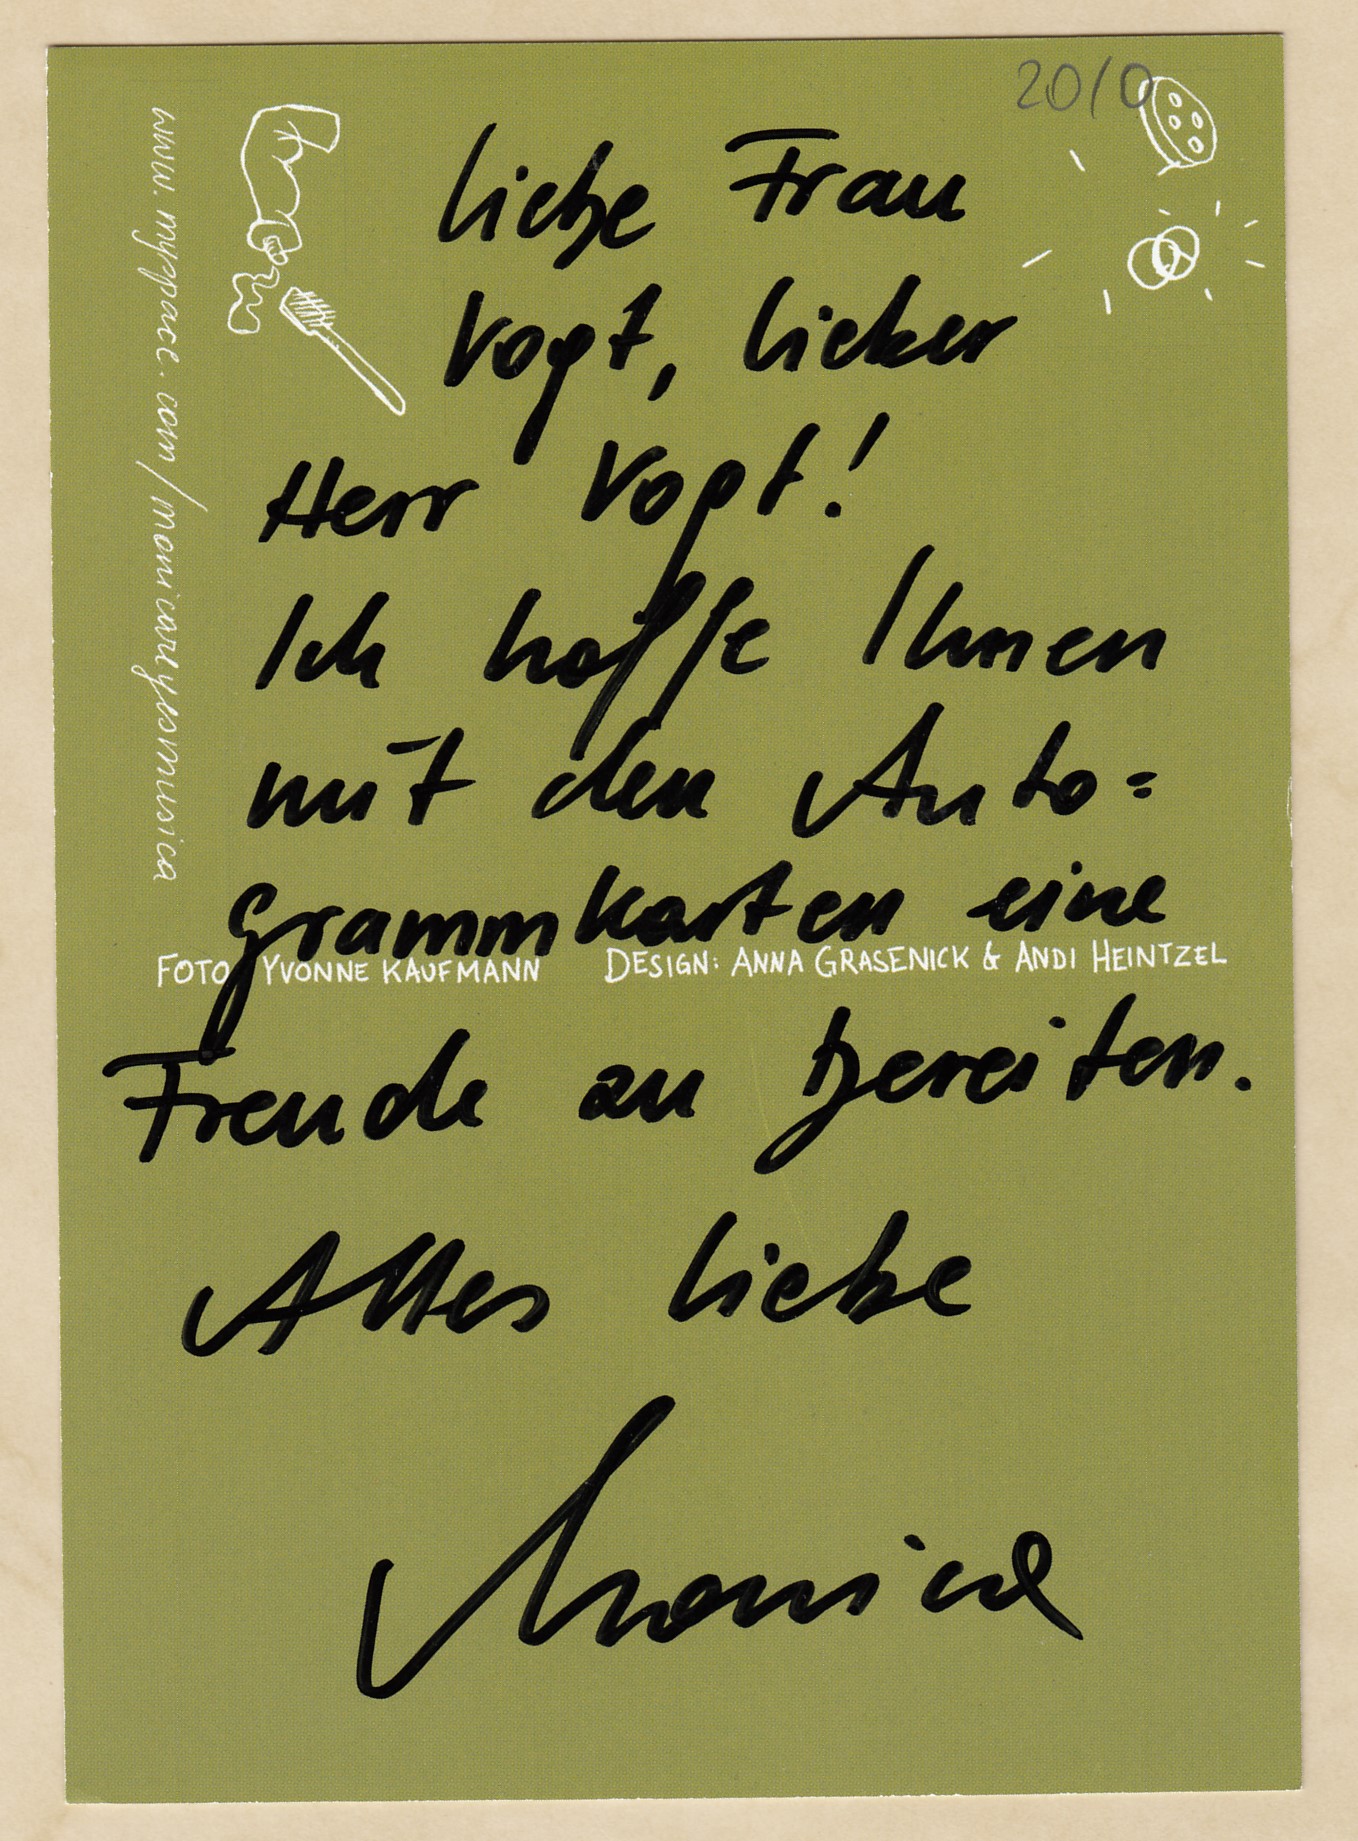 2010
liebe Frau
Vogt, lieber
Herr Vogt!
Ich hoffe Ihnen
mit den Auto=
grammkarten eine
Freude zu bereiten.
Alles liebe
Monica
FOTO: YVONNE KAUFMANN DESIGN: ANNA GRASENICK & ANDI HEINTZEL